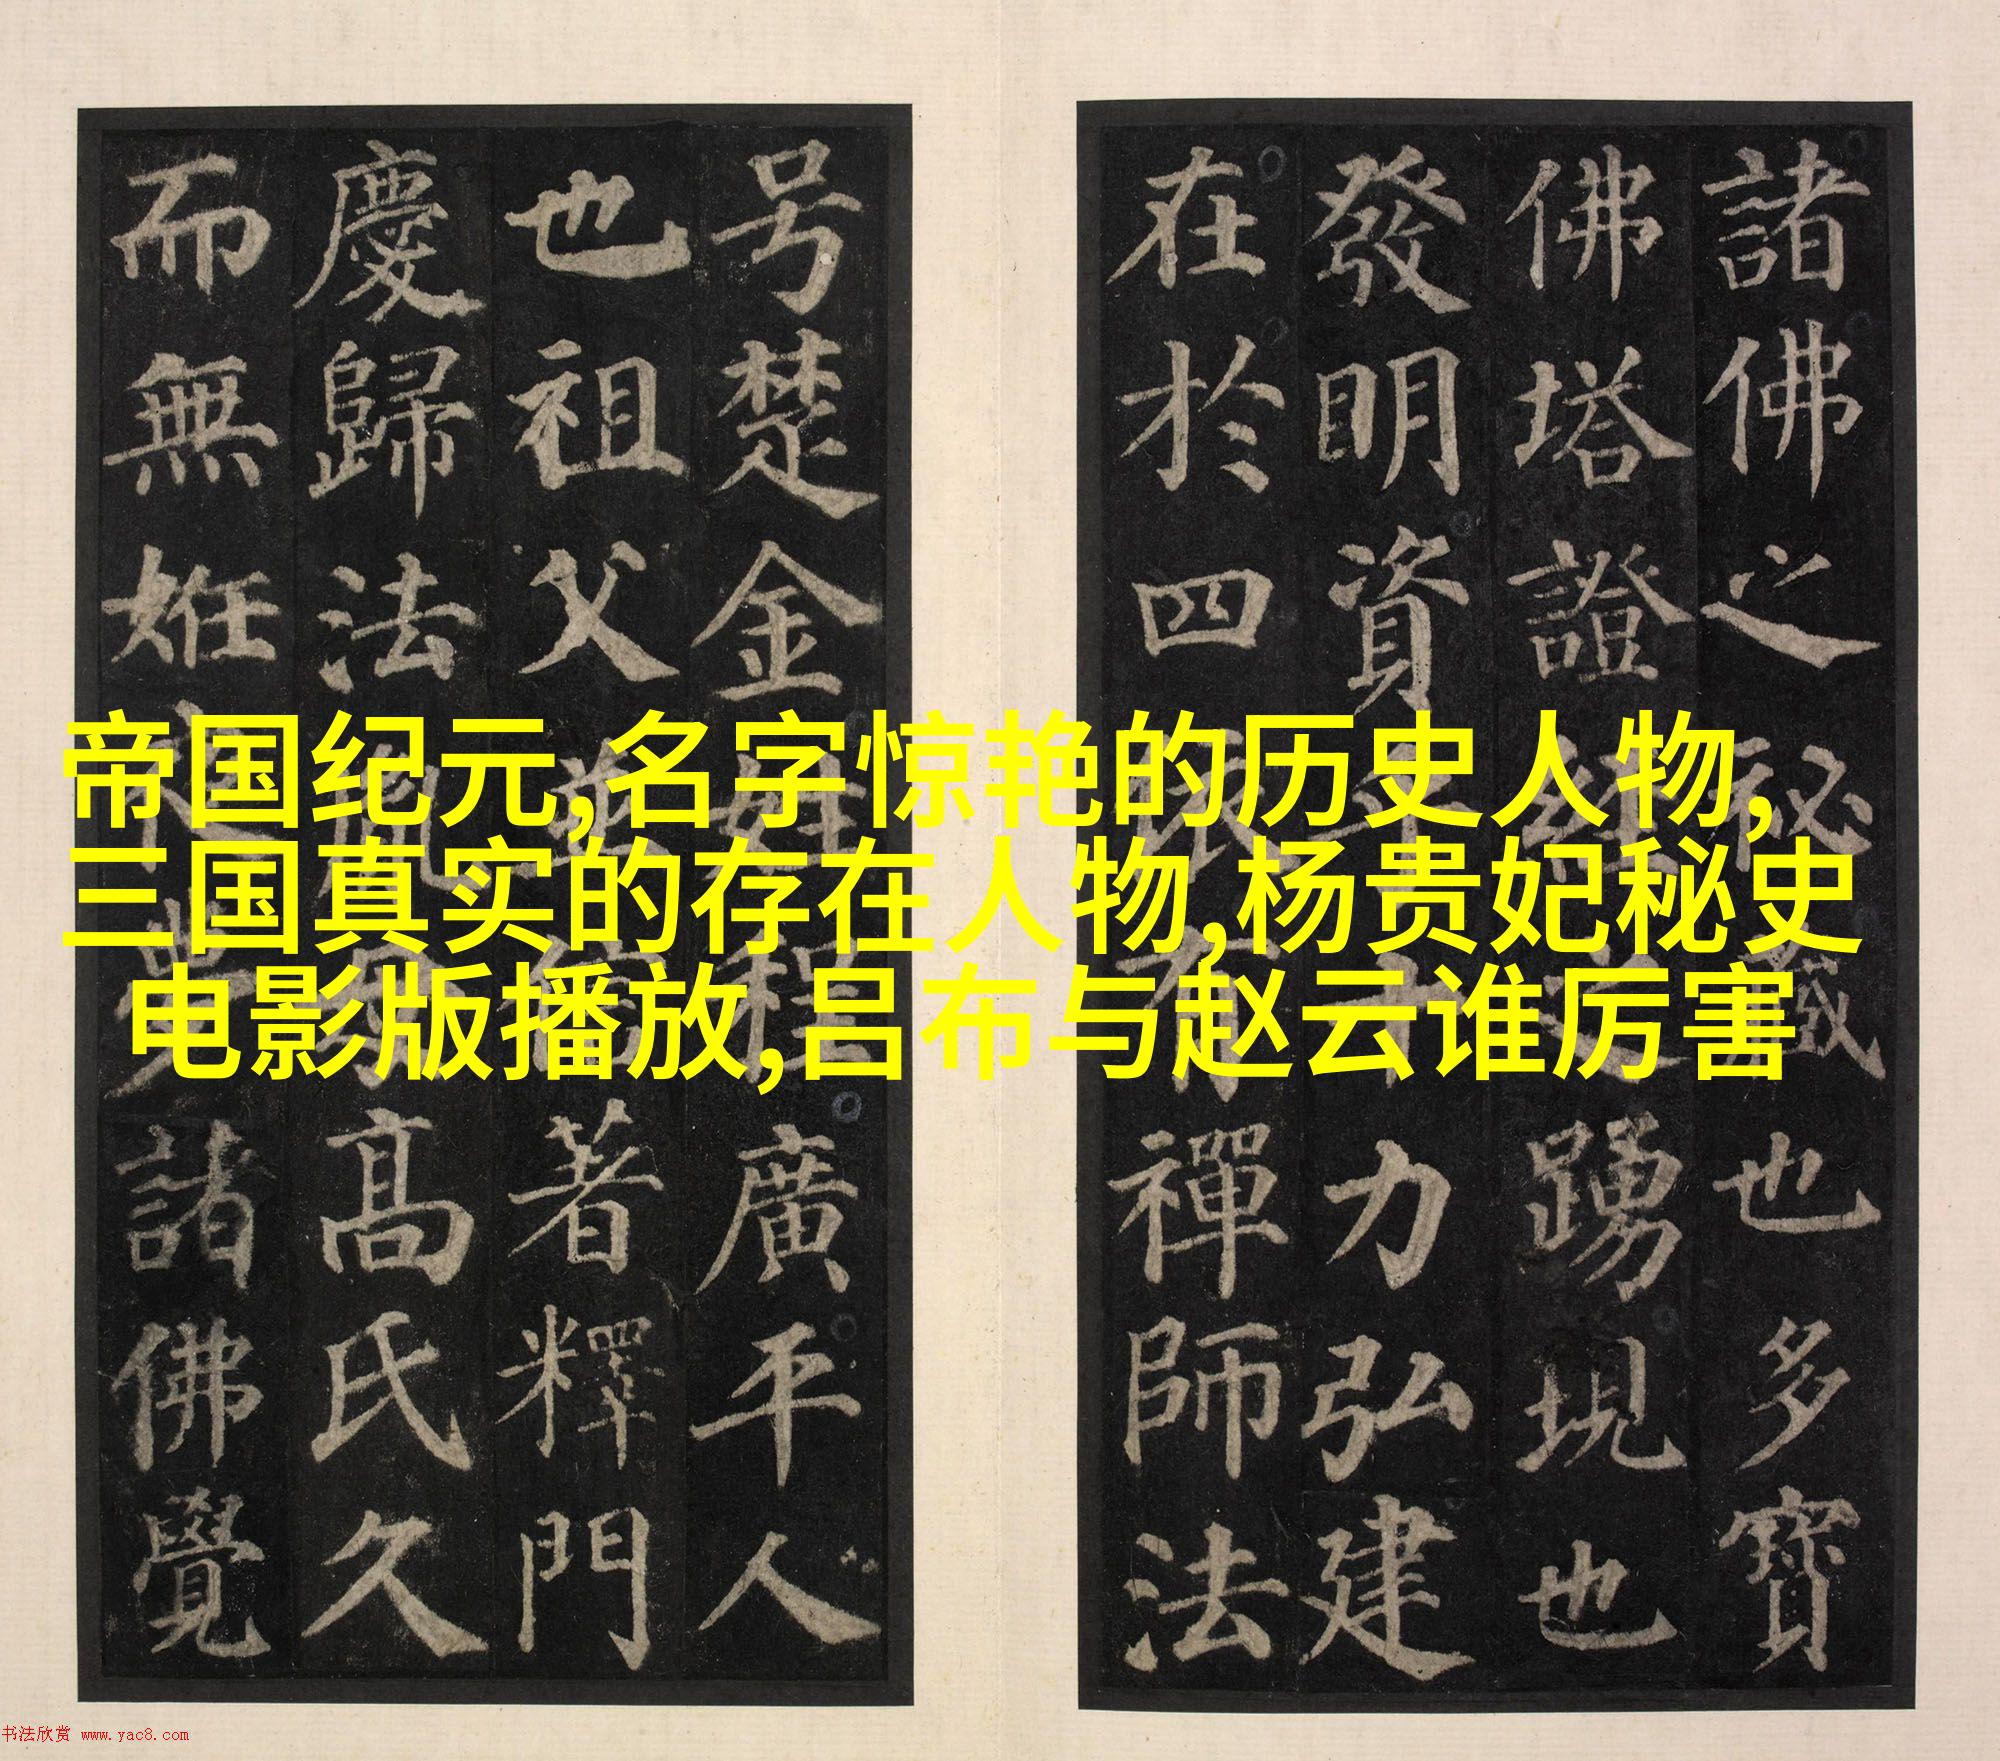 諸佛之秘藏也多寶
佛塔證經之踴現也
發明資乎十力弘建
在於四依有禪師法
号楚金姓程廣平人
也祖父並信著釋門
慶歸法胤母高氏久
而無姙夜夢諸佛覺
帝国纪元,名字惊艳的历史人物,
三国真实的存在人物,杨贵妃秘史
电影版播放,吕布与赵云谁厉害
书法欣赏 www.yac8.com